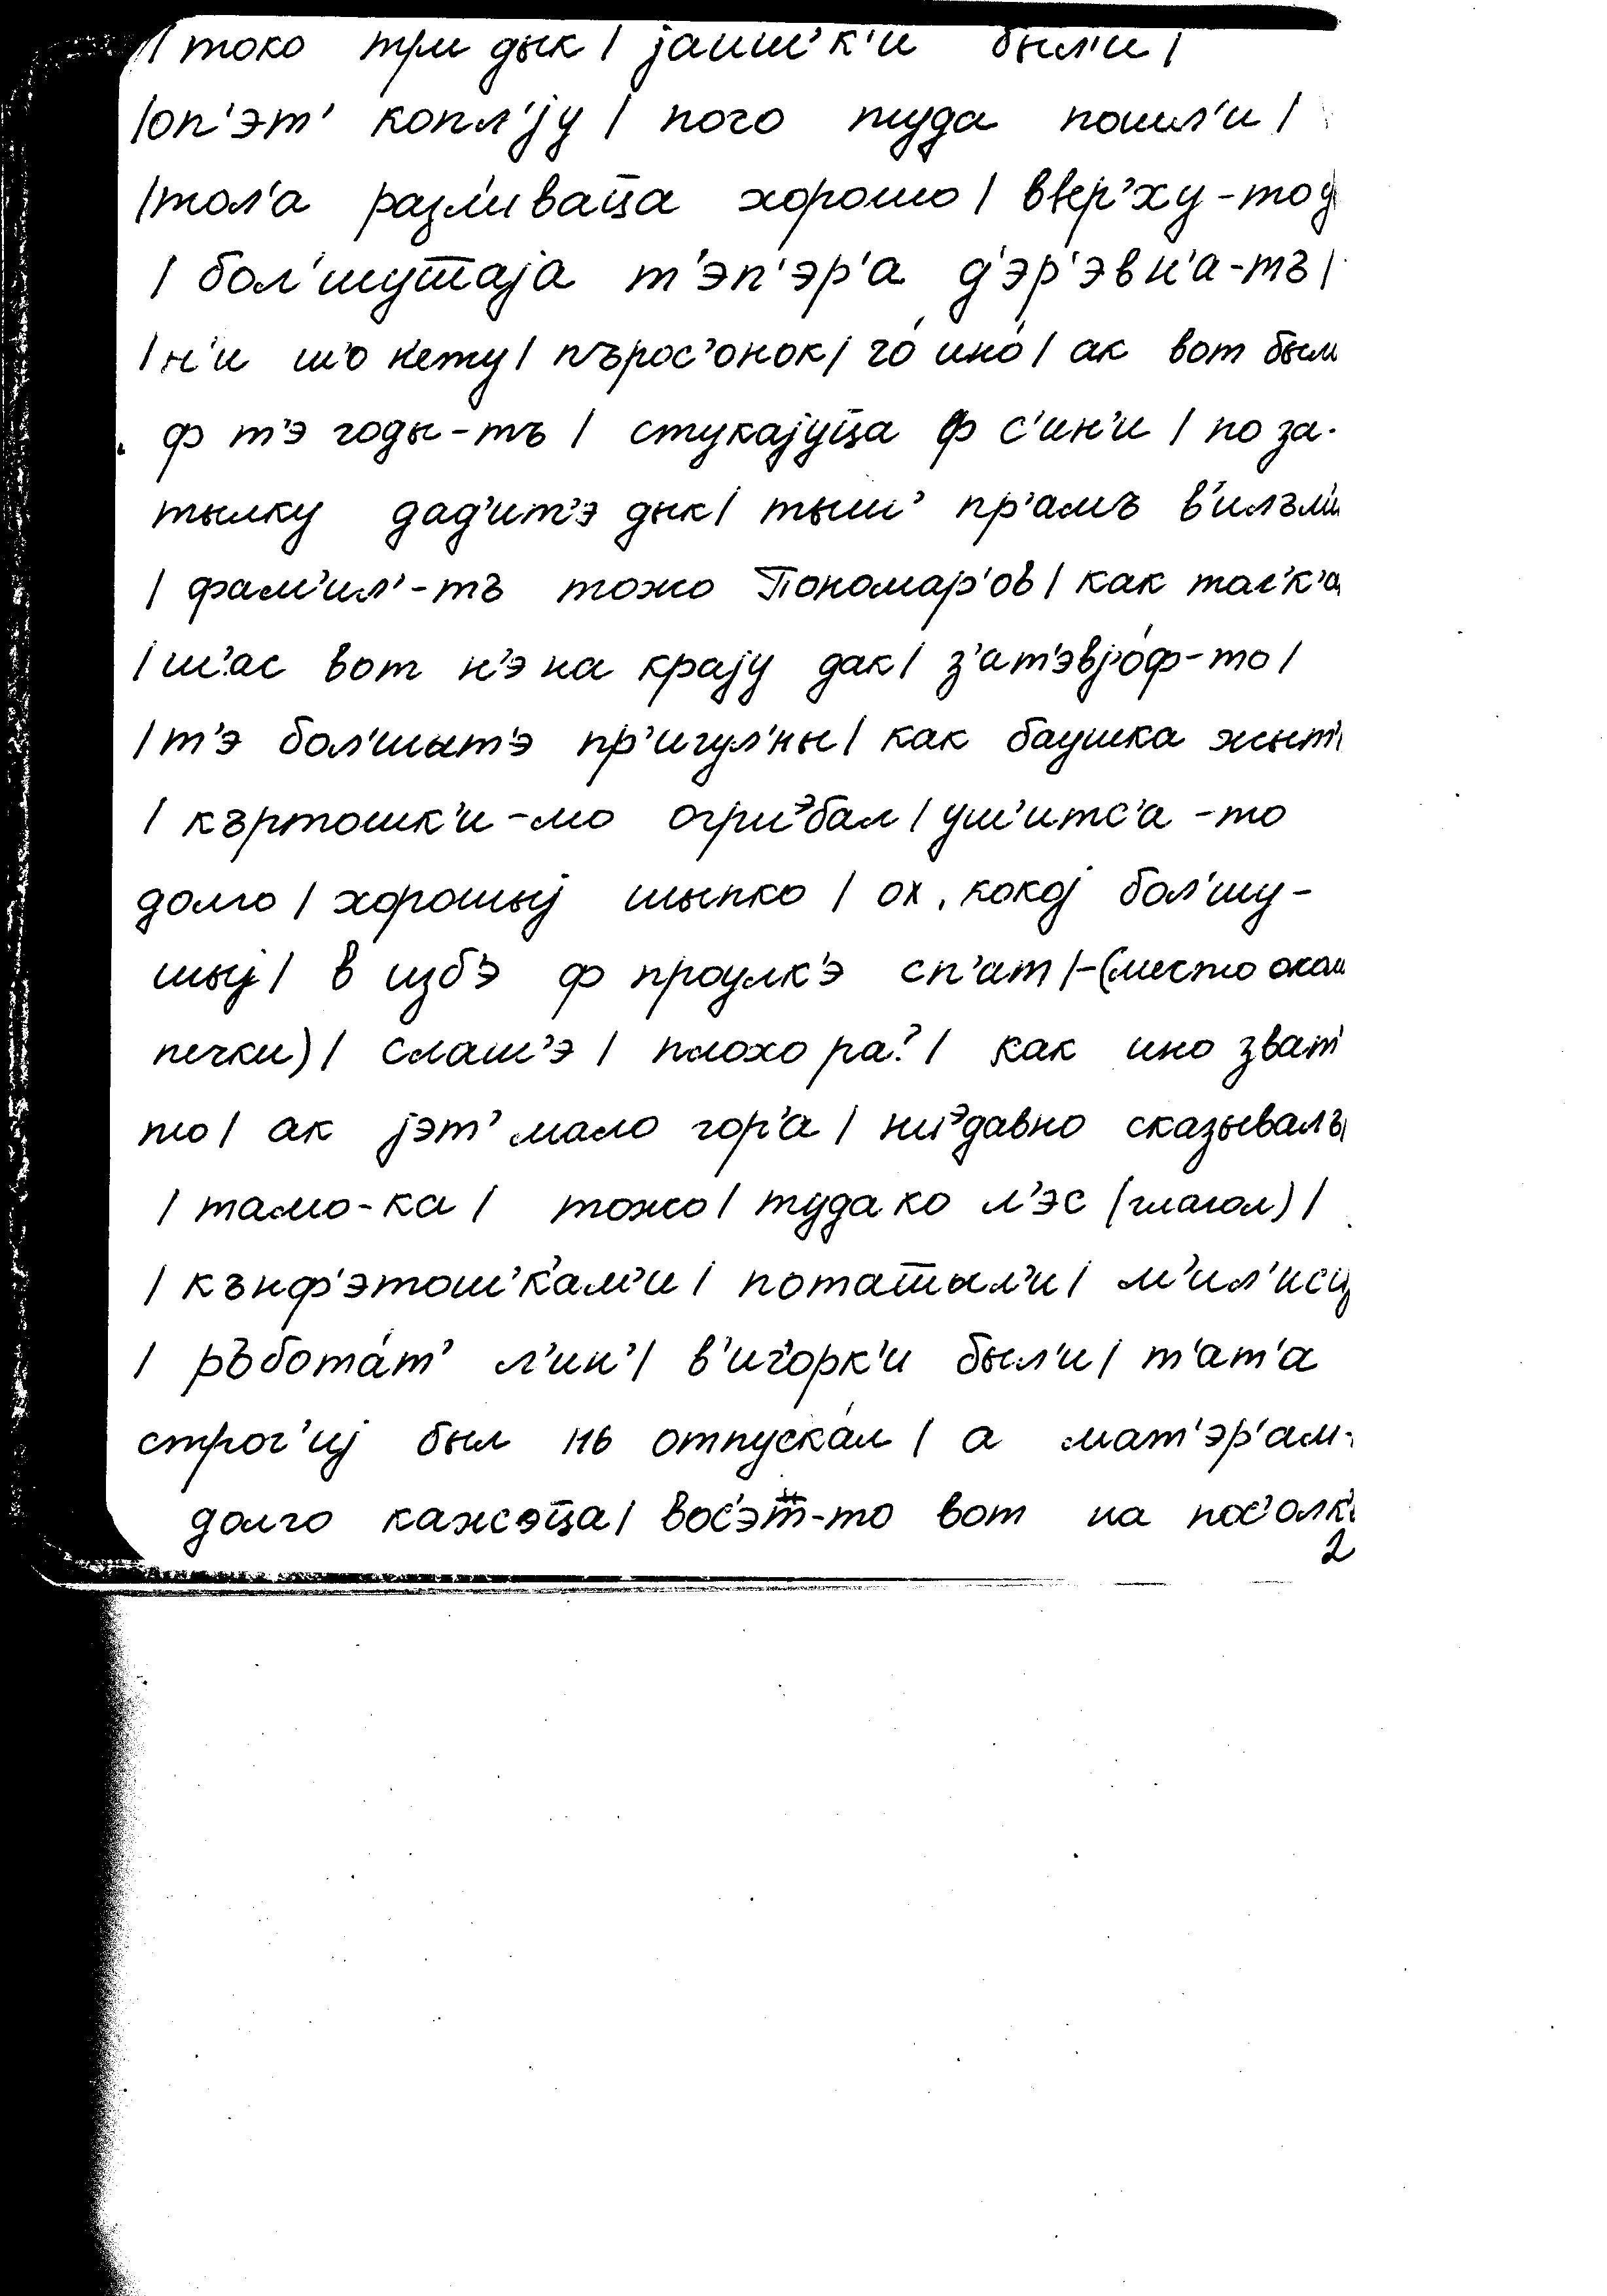 / токо три дык / јаиш'к'и был'и /
/ оп'эт' копл'ју / пого туда пошл'и /
/ тол'а разл'иваӣца хорошо / ввер'ху-то
/ бол'шуща т'эп'эр'а д'эр'эвн'а-тъ /
/ н'и ш'о нету / пърос'онок / го́ ино́ / ак вот был
ф т'э годы-тъ / стукајуца ф с'ин'и / по за-
тылку дад'ит'э дык / тыш' пр'амъ
/ фам'ил'-тъ тожо Пономар'ов / как
/ ш'ас вот н'э на крају дак / з'ат'эвјо́ф-то /
/ т'э бол'шыт'э пр'игул'ны / как баушка жыт'
/ къртошк'и-мо огриᵊбал / уш'итс'а-то
долго / хорошыј шыпко / ох, кокој бол'шу-
шыј / в избэ ф проулк'э сп'ат / - (место окол
печки) / слаш'э / плохо ра? / как ино зват'
то / ак јэт' мало гор'а / ниᵊдавно сказывалъ
/ тамо-ка / тожо / туда ко л'эс (глагол) /
/ кънф'этош'к'ам'и / м'ил'исц
/ ръбота́т' л'ин' / в'игорк'и был'и / т'ат'а
строг'иј был нь отпуска́л / а мат'эр'ам-
долго кажэца / вот на пос'олк'
2